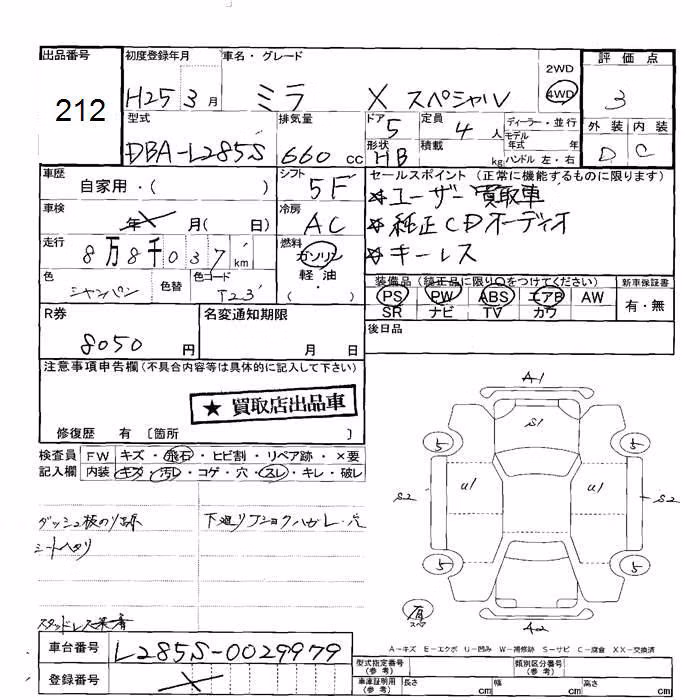 出品番号
212
初度登録年月
H25 3月
車名・グレード
ミラ X スペシャル
2WD
4WD
評価点
3
型式
DBA-L285S
排気量
660 cc
ドア
5
形状
HB
定員
4 人
積載
kg
ディーラー・並行
モデル
年式 年
ハンドル 左・右
外装 内装
D C
車歴
自家用・( )
シフト
5F
セールスポイント (正常に機能するものに限ります)
ユーザー買取車
純正CDオーディオ
キーレス
車検
年 月( 日)
冷房
AC
走行
8万8千037km
燃料
ガソリン
軽油
( )
色
シャンパン
色替
色コード
T23
装備品 (純正品に限り○をつけてください)
PS PW ABS エアB AW
SR ナビ TV カワ
新車保証書
有・無
R券
8050 円
名変通知期限
月 日
後日品
注意事項申告欄(不具合内容等は具体的に記入して下さい)
★ 買取店出品車
修復歴 有 〔箇所 〕
検査員
記入欄
FW キズ・飛石・ヒビ割・リペア跡・×要
内装 キズ・汚レ・コゲ・穴・スレ・キレ・破レ
シートヘタリ
A1
S1
5
5
S2
U1
U1
S2
5
5
A2
A-キズ E-エクボ U-凹み W-補修跡 S-サビ C-腐食 XX-交換済
車台番号
L285S-0029979
登録番号
型式指定番号
(参考)
類別区分番号
(参考)
車庫証明用
(参考)
長さ cm
幅 cm
高さ cm